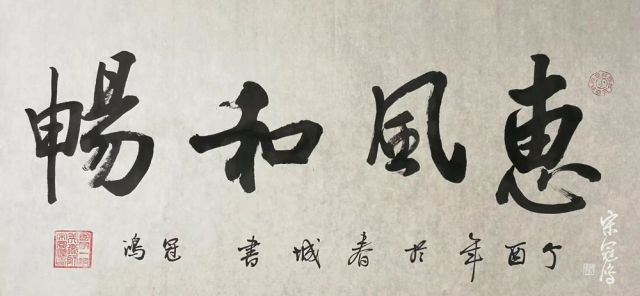 惠風和暢
丁酉年於春城書冠鴻
宋冠鴻